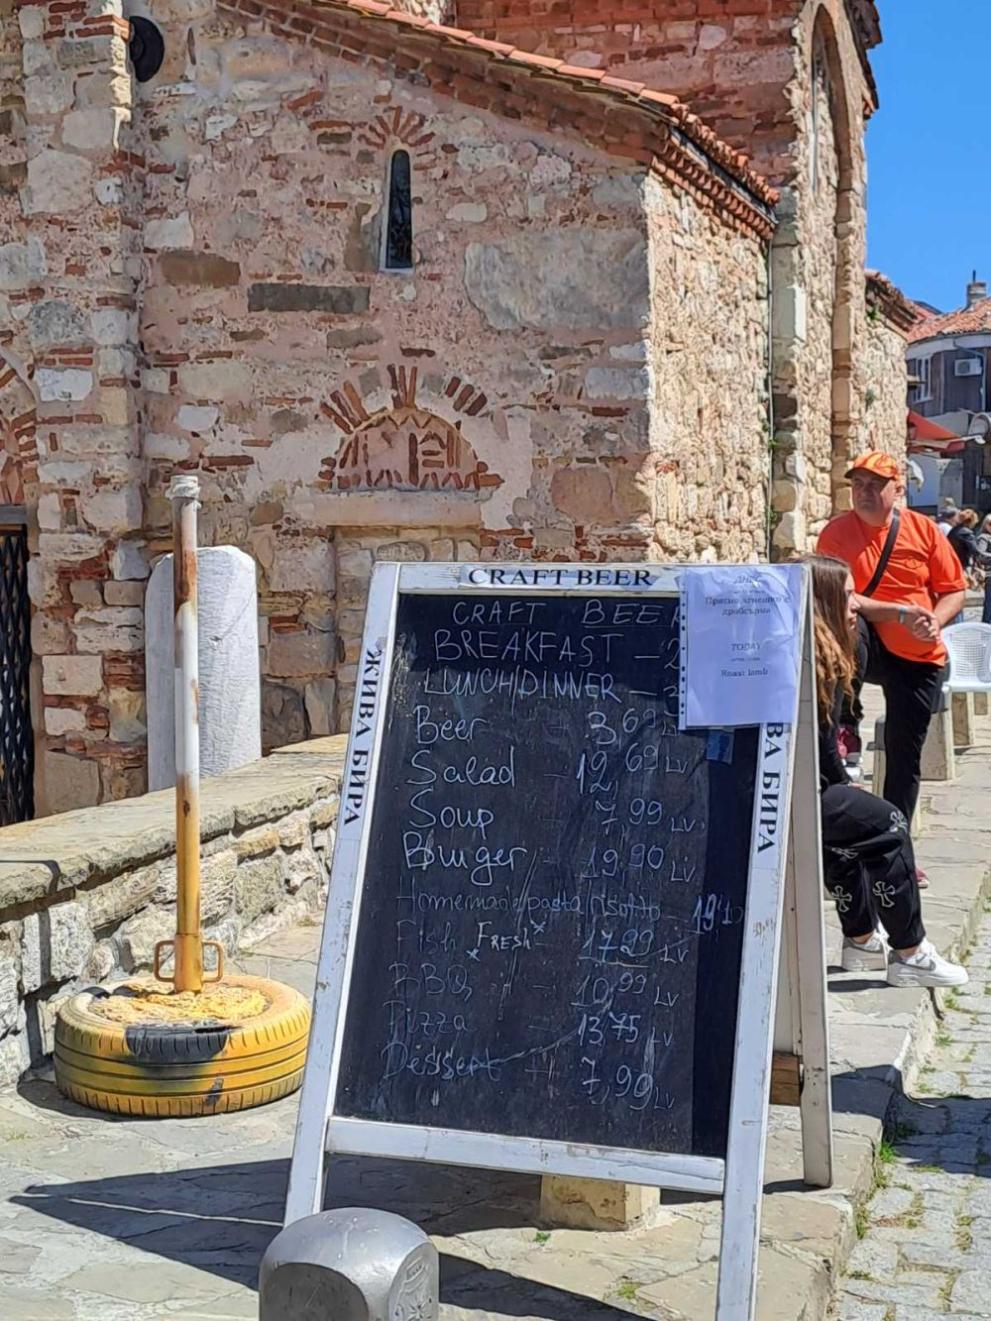 CRAFT BEER
CRAFT BEE
BREAKFAST –
LUNCH/DINNER –
Beer 3 69 Lv
Salad – 12, 69 Lv
Soup – 7, 99 Lv
Burger – 19,90 Lv
Homemade pasta/risotto – 19'10
Fish x Fresh x 17 99 Lv
BBQ – 10,99 Lv
Pizza – 13,75 Lv
Dessert – 7,99 Lv
ЖИВА БИРА
ВА БИРА
ДНЕС
Прясно агнешко с
дробсърма
TODAY
Roast lamb